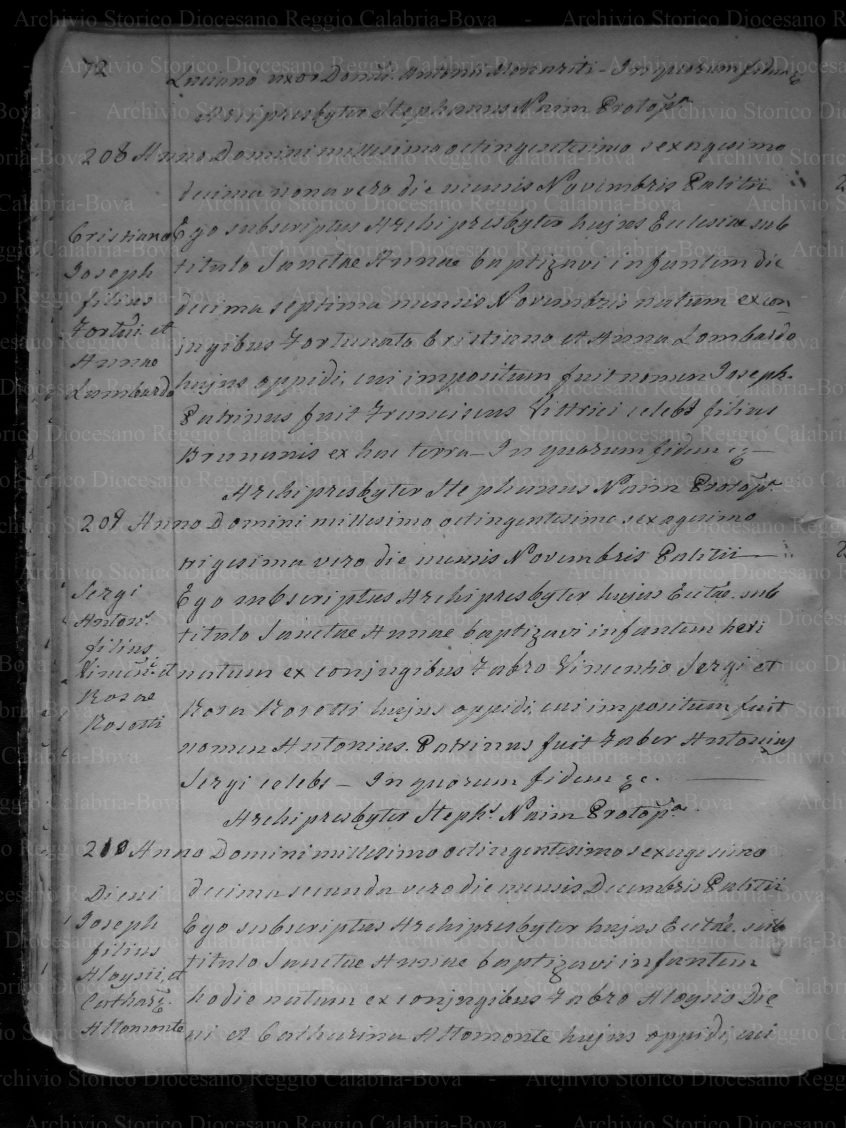 72
Luciano uxor Domci. Antonii Monoriti - In quorum fidem &
Archipresbyter Stephanus Naim Protopa.
208 Anno Domini millesimo octingentesimo sexagesimo
decima nona vero die mensis Novembris Palitii
Ego subscriptus Archipresbyter hujus Eclesiae sub
titulo Sanctae Annae baptizavi infantem die
decima septima mensis Novembris natum ex con
jugibus Fortunato Cristiano et Anna Lombardo
hujus oppidi, cui impositum fuit nomen Joseph.
Patrinus fuit Franciscus Vittrici celebs filius
Brunonis ex hac terra - In quorum fidem &c -
Archipresbyter Stephanus Naim Protopa.
Cristiano
Joseph
filius
Fortuti. et
Annae
Lumbardo
209 Anno Domini millesimo octingentesimo sexagesimo
trigesima vero die mensis Novembris Palitii
Ego subscriptus Archipresbyter hujus Ecclae. sub
titulo Sanctae Annae baptizavi infantem heri
natum ex conjugibus Fabro Vincentio Sergi et
Rosa Rosotti hujus oppidi, cui impositum fuit
nomen Antonius. Patrinus fuit Faber Antonius
Sergi celebs - In quorum fidem &c.
Archipresbyter Stephs. Naim Protopa.
Sergi
Antons.
filius
Vincen. et
Rosae
Rosotti
210 Anno Domini millesimo octingentesimo sexagesimo
decima secunda vero die mensis Decembris Palitii
Ego subscriptus Archipresbyter hujus Ecclae. sub
titulo Sanctae Annae baptizavi infantem
hodie natum ex conjugibus Fabro Aloysio Die
ni et Catharina Altomonte hujus oppidi, cui
Dieni
Joseph
filius
Aloysii, et
Cathare.
Altomonte
Archivio Storico Diocesano Reggio Calabria-Bova